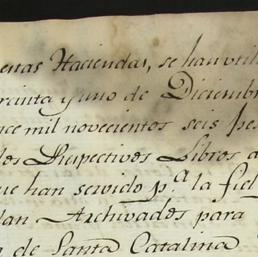 enas Haciendas, se han util
reinta y uno de Diciembr
ce mil novecientos seis pes
los Respectivos Libros a
ue han servido p.ª la fiel
dan Archivados para
de Santa Catalina